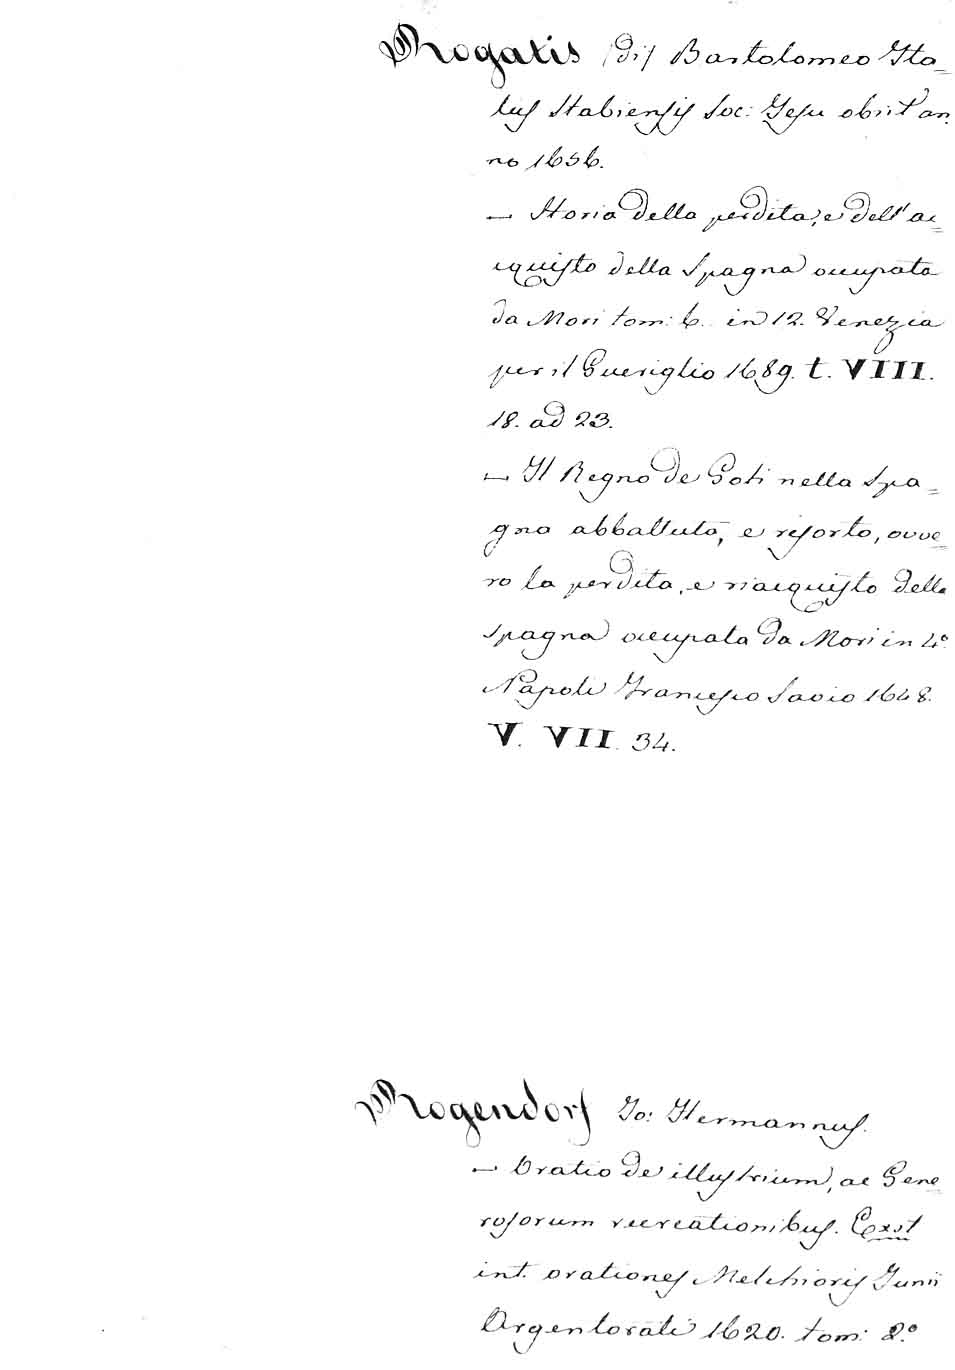 Rogatis (di) Bartolomeo Ita=
lus Stabiensis Soc: Jesu obiit an=
no 1656.
— Storia della perdita, e dell'ac=
cquisto della Spagna occupata
da Mori tom: 6. in 12. Venezia
per il Gueriglio 1689. t. VIII.
18. ad 23.
— Il Regno de Goti nella Spa=
gna abbattuto, e risorto, ovve=
ro la perdita, e riacquisto della
Spagna occupata da Mori in 4.º
Napoli Francesco Savio 1648.
V. VII. 34.
Rogendorf Jo: Hermannus.
— Oratio de illustrium, ac Gene=
rosorum recreationibus. Exst
int. orationes Melchioris Junii
Argentorati 1620. tom: 2.º